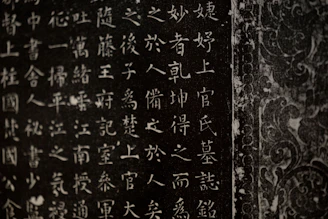 婕妤上官氏墓誌銘
妙者乾坤得之而為
之於人備之於人矣
之後子為楚上官大
隨藤王府記室參軍
吐萬緒平江南授通
征一掃平江之氛祲
中書舍人祕書少
督上柱國楚國公食